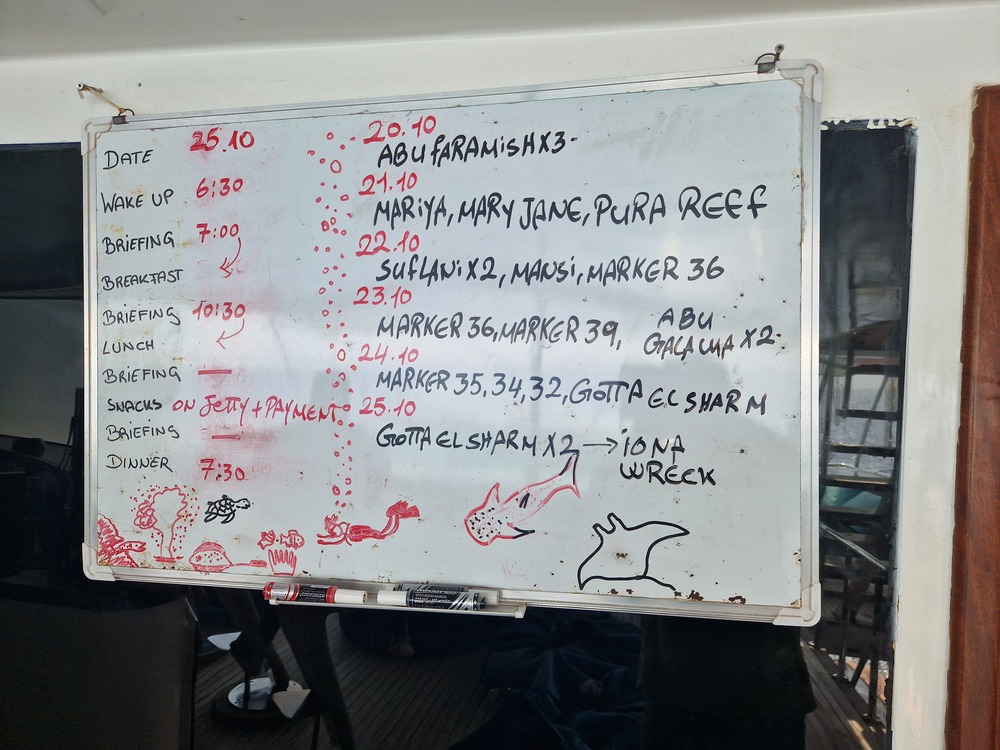 DATE 25.10
WAKE UP 6:30
BRIEFING 7:00
BREAKFAST
BRIEFING 10:30
LUNCH
BRIEFING —
SNACKS ON JETTY + PAYMENT
BRIEFING —
DINNER 7:30
20.10
ABU FARAMISH X3-
21.10
MARIYA, MARY JANE, PURA REEF
22.10
SUFLANI X2, MANSI, MARKER 36
23.10
MARKER 36, MARKER 39, ABU GALAWA X2-
24.10
MARKER 35, 34, 32, GOTTA EL SHARM
25.10
GOTTA EL SHARM X2 → IONA
WRECK